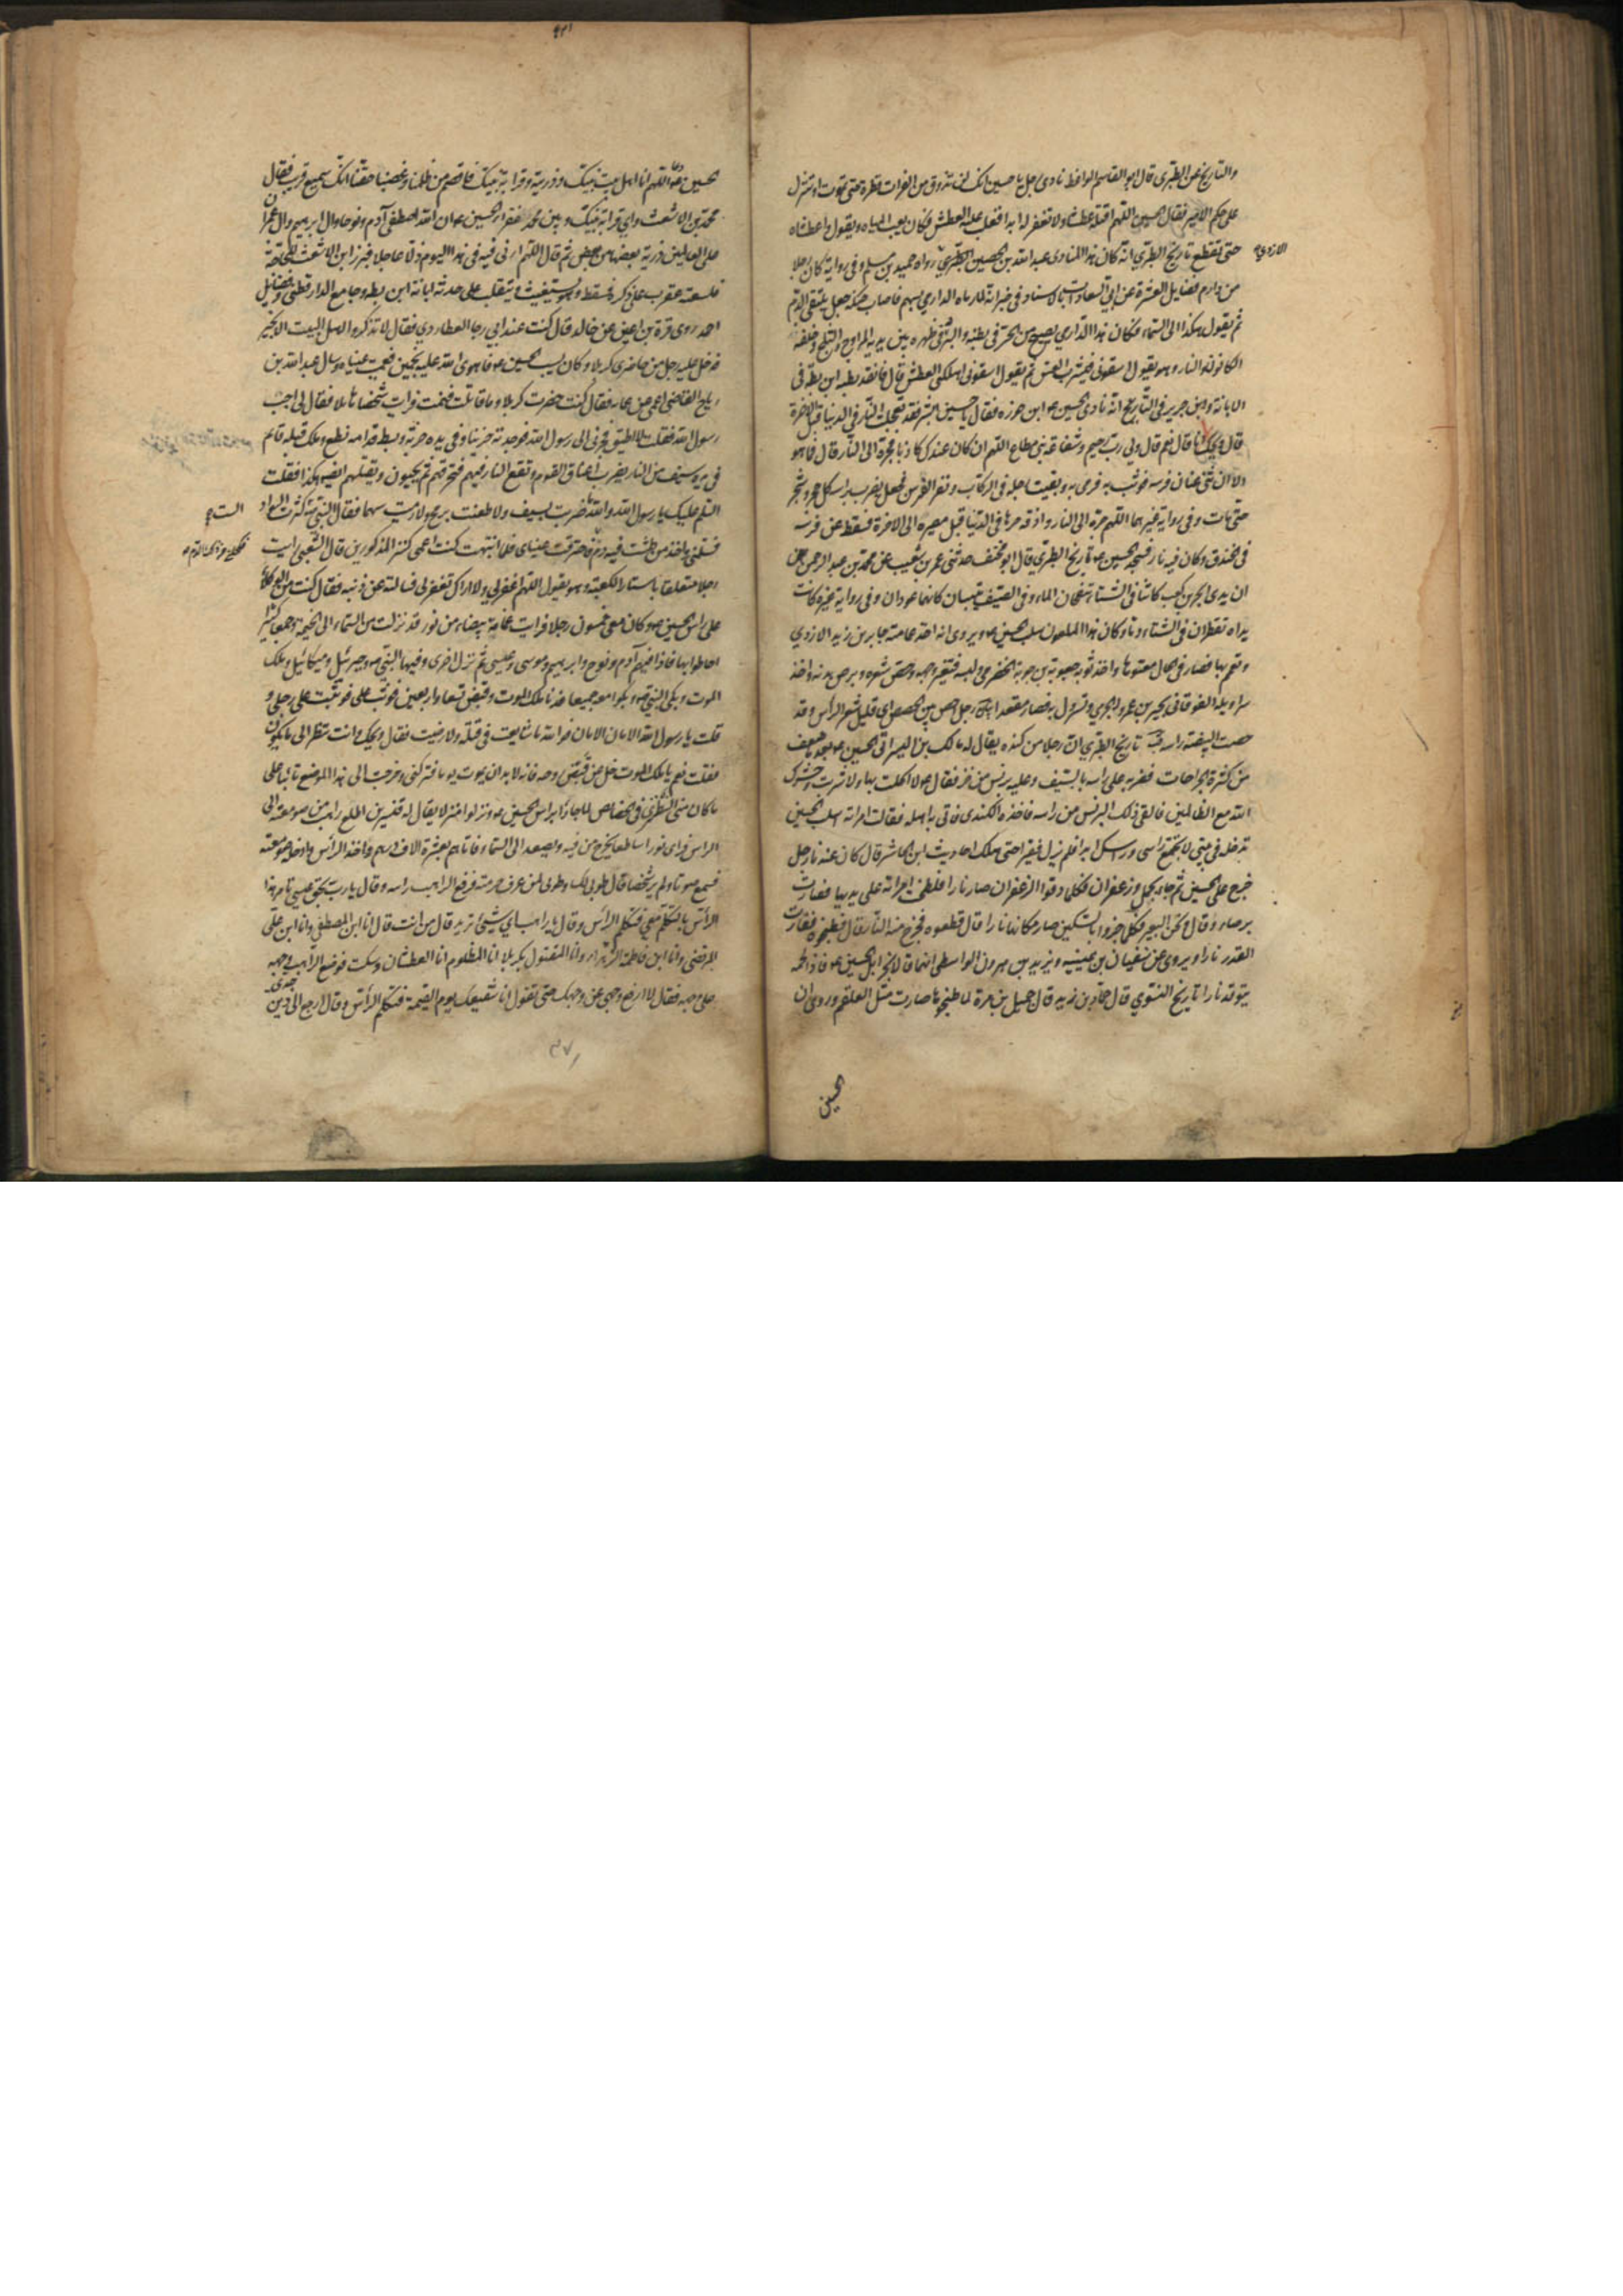 والتاريخ عن الطبري قال ابو القاسم الواعظ نادى رجل يا حسين انك لن تذوق من الفرات قطرة حتى تموت او تنزل
على حكم الامير فقال الحسين اللهم اقتله عطشا ولا تغفر له ابدا فغلب عليه العطش فكان يعب المياه ويقول واعطشاه
حتى تقطع تاريخ الطبري انه كان هذا المنادي عبد الله بن الحصين رواه حميد بن مسلم وفي رواية كان رجلا
الازدي
من دارم فضايل العشرة عن ابي السعادات بالاسناد في خبر انه لما رماه الدارمي بسهم فاصاب حنكه جعل يلتقى الدم
ثم يقول هكذا الى السماء فكان هذا الدارمي يصيح من الحر في بطنه والبرد في ظهره بين يديه المراوح والثلج وخلفه
الكانون والنار وهو يقول اسقوني فيشرب العس ثم يقول اسقوني اهلكني العطش قال فانقد بطنه ابن بطة في
الابانة وابن جرير في التاريخ انه نادى الحسين ابن جوزه فقال يا حسين ابشر فقد تعجلت النار في الدنيا قبل الاخرة
قال ويحك انا قال نعم قال ولي رب رحيم وشفاعة نبي مطاع اللهم ان كان عندك كاذبا فجره الى النار قال فما هو
الا ان ثنى عنان فرسه فوثب به فرمى به وبقيت رجله في الركاب ونفر الفرس فجعل يضرب براسه كل حجر وشجر
حتى مات وفي رواية غيرهما اللهم جره الى النار واذقه حرها في الدنيا قبل مصيره الى الاخرة فسقط عن فرسه
في الخندق وكان فيه نار فسجد الحسين تاريخ الطبري قال ابو مخنف حدثني عمر بن شعيب عن محمد بن عبد الرحمن
ان يدى ابجر بن كعب كانتا في الشتاء تنضحان الماء وفي الصيف يبسان كانهما عودان وفي رواية غيره كانت
يداه تقطران في الشتاء دما وكان هذا الملعون سلب الحسين ويروى انه اخذ عمامته جابر بن زيد الازدي
وتعمم بها فصار في الحال معتوها واخذ ثوبه جعوبة بن حوية الحضرمي ولبسه فتغير وجهه وحص شعره وبرص بدنه واخذ
سراويله الفوقاني بحير بن عمرو الجرمي وتسرول به فصار مقعدا رجل احص بين الحصص اي قليل شعر الراس وقد
حصت البيضة راسه تاريخ الطبري ان رجلا من كنده يقال له مالك بن اليسر اتى الحسين بعد ما ضعف
من كثرة الجراحات فضربه على راسه بالسيف وعليه برنس من خز فقال لا اكلت بها ولا شربت وحشرك
الله مع الظالمين فالقى ذلك البرنس من راسه فاخذه الكندي فاتى به اهله فقالت امراته اسلب الحسين
تدخله في بيتي لا يجتمع راسي وراسك ابدا فلم يزل فقيرا حتى هلك احاديث ابن الحاشر قال كان عندنا رجل
خرج على الحسين ثم جاء بجمل وزعفران فكلما دقوا الزعفران صار نارا فلطخت امراته على يديها فصارت
برصاء وقال ونحر البعير فكلما جزوا بالسكين صار مكانها نارا قال فقطعوه فخرج منه النار قال فطبخوه ففارت
القدر نارا ويروى عن سفيان بن عيينه ويزيد بن هرون الواسطي انهما قالا نحر ابل الحسين فاذا لحمه
يتوقد نارا تاريخ النسوي قال حماد بن زيد قال جميل بن مرة لما طبخوها صارت مثل العلقم وروي ان
الحسين
الحسين دعا اللهم انا اهل بيت نبيك وذريته وقرابته نبيك فاقصم من ظلمنا وغصبنا حقنا انك سميع قريب فقال
محمد بن الاشعث واي قرابة بينك وبين محمد فقرا الحسين ان الله اصطفى آدم ونوحا وال ابرهيم وال عمران
على العالمين ذرية بعضها من بعض ثم قال اللهم ارني فيه في هذا اليوم ذلا عاجلا فبرز ابن الاشعث للحاجة
فلسعته عقرب على ذكره فسقط وهو يستغيث ويتقلب على حدثه ابانة ابن بطه وجامع الدارقطني وفضايل
احمد روى قرة بن اعين عن خاله قال كنت عند ابي رجا العطاردي فقال لا تذكروا اهل البيت الا بخير
فدخل عليه رجل من حاضري كربلا وكان يسب الحسين فاهوى الله عليه نجمين فعميت عيناه وسال عبد الله بن
رباح القاضي اعمى عن عماه فقال كنت حضرت كربلا وما قاتلت فنمت فرايت شخصا هايلا فقال لي اجب
رسول الله فقلت لا اطيق فجرني الى رسول الله فوجدته حزينا وفي يده حربة وبسط قدامه نطع وملك قبله قائم
في يده سيف من النار يضرب اعناق القوم وتقع النار فيهم فتحرقهم ثم يحيون ويقتلهم ايضا هكذا فقلت
السلم عليك يا رسول الله والله ما ضربت بسيف ولا طعنت برمح ولا رميت سهما فقال النبي كثرت السواد
الست
فسلمني واخذ من طشت فيه دم فاحترقت عيناى فلما انتبهت كنت اعمى كنز المذكورين قال الشعبي رايت
رجلا متعلقا باستار الكعبة وهو يقول اللهم اغفر لي ولا اراك تغفر لي فسالته عن ذنبه فقال كنت من الوكلاء
على راس الحسين وكان معي خمسون رجلا فرايت غمامة بيضاء من نور قد نزلت من السماء الى الخيمة وجمعا كثيرا
احاطوا بها فاذا فيهم آدم ونوح وابرهيم وموسى وعيسى ثم نزلت اخرى وفيها النبي وجبرئيل وميكائيل وملك
الموت وبكى النبي وبكوا معه جميعا فدنا ملك الموت وقبض تسعا واربعين فوثب علي فوثبت على رجلي و
قلت يا رسول الله الامان الامان فوالله ما شايعت في قتله ولا رضيت فقال ويحك وانت تنظر الى ما يكون
فقلت نعم فقال يا ملك الموت خل عن قبض روحه فانه لا بد ان يموت يوما فتركني وخرجت الى هذا الموضع تائبا على
ما كان مني النطنزي في الخصائص لما جاؤا براس الحسين ونزلوا منزلا يقال له قنسرين اطلع راهب من صومعته الى
الراس فراى نورا ساطعا يخرج من فيه ويصعد الى السماء فاتاهم بعشرة الاف درهم واخذ الراس وادخله صومعته
فسمع صوتا ولم ير شخصا قال طوبى لك وطوبى لمن عرف حرمته فرفع الراهب راسه وقال يا رب بحق عيسى تامر هذا
الراس بالتكلم معي فتكلم الراس وقال يا راهب اي شيء تريد قال من انت قال انا ابن محمد المصطفى وانا ابن علي
المرتضى وانا ابن فاطمة الزهراء وانا المقتول بكربلا انا المظلوم انا العطشان وسكت فوضع الراهب وجهه
على وجهه فقال لا ارفع وجهي عن وجهك حتى تقول انا شفيعك يوم القيمة فتكلم الراس وقال ارجع الى دين جدي